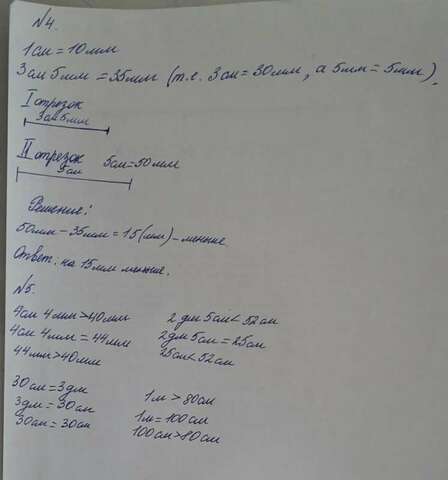 №4.
1см = 10мм
3см 5мм = 35мм (т.е. 3см = 30мм, а 5мм = 5мм).
I отрезок
3см5мм
II отрезок 5см=50мм
5см
Решение:
50мм – 35мм = 15(мм) – меньше.
Ответ. на 15мм меньше.
№5.
4см 4мм > 40мм
4см 4мм = 44мм
44мм > 40мм
2дм 5см < 52см
2дм 5см = 25см
25см < 52см
30см = 3дм
3дм = 30см
30см = 30см
1м > 80см
1м = 100см
100см > 80см